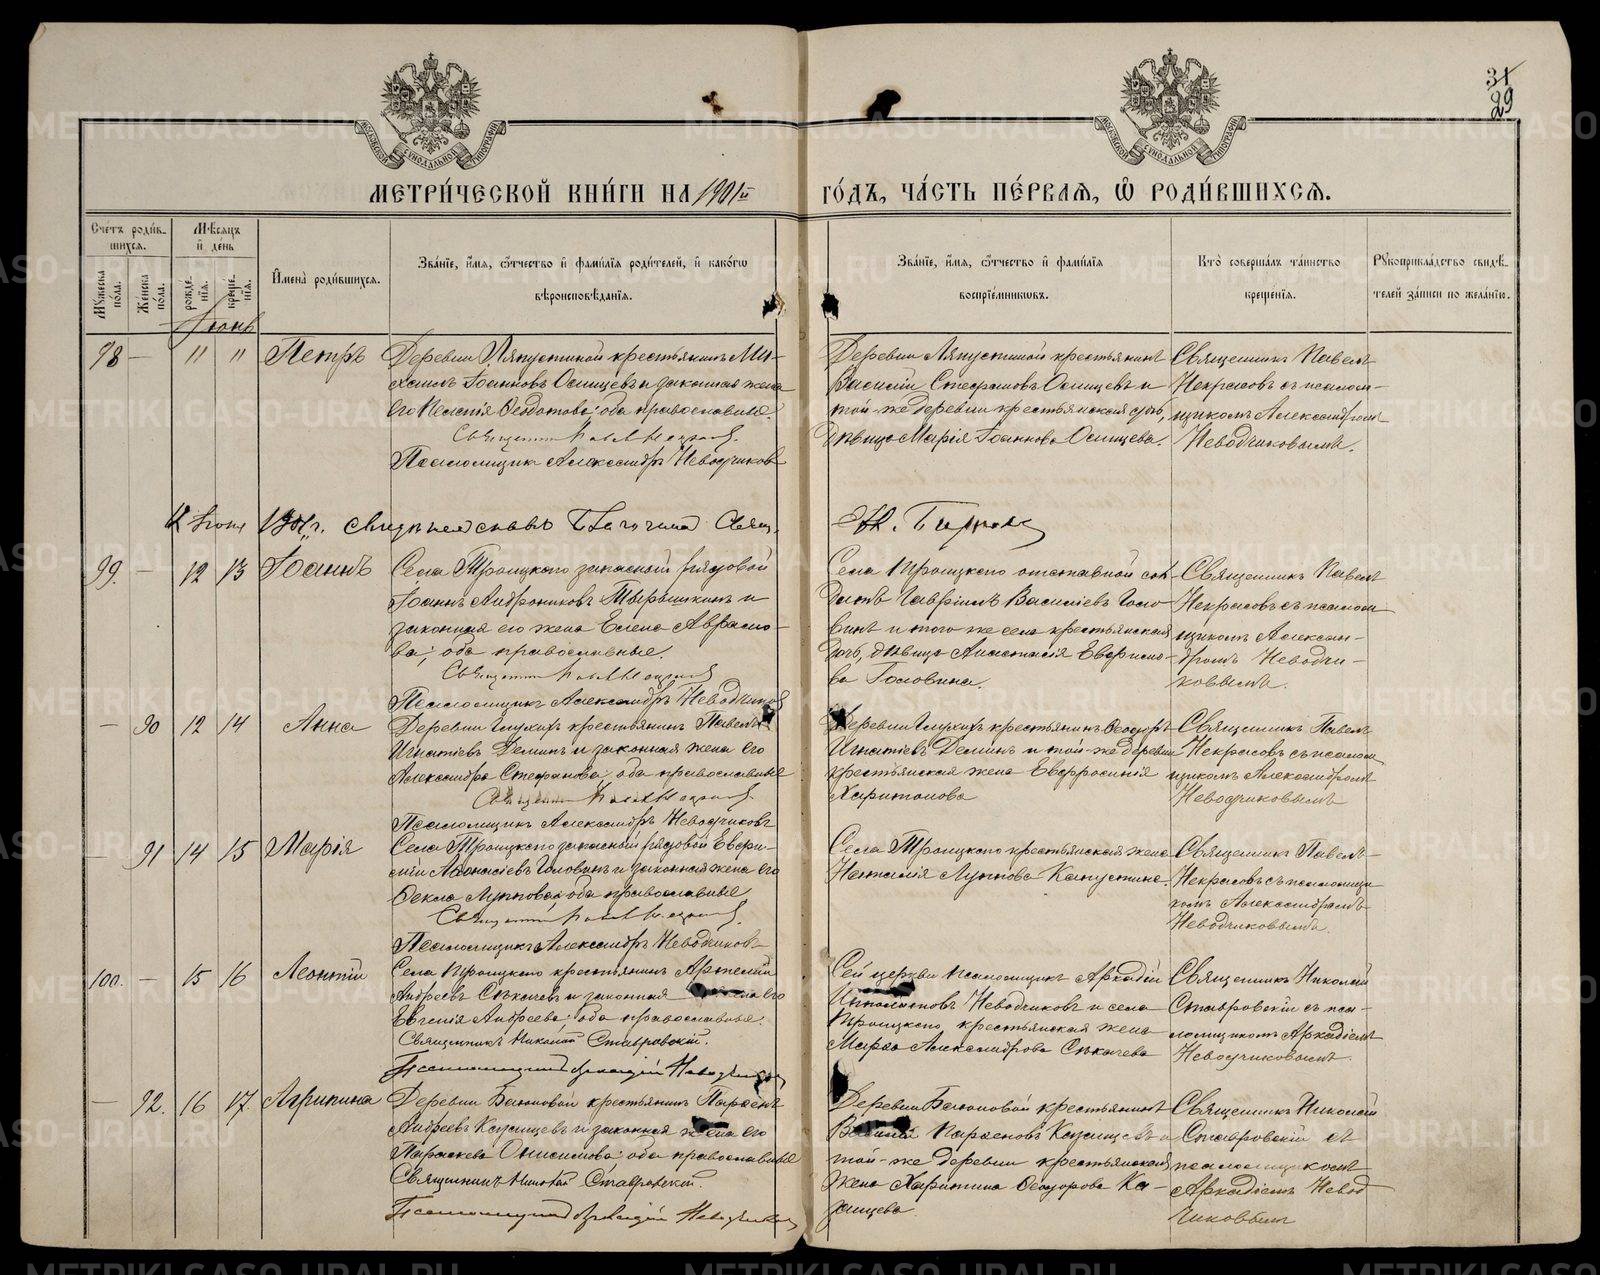 31
29
МЕТРИ́ЧЕСКОЙ КНИ́ГИ НА 1901й ГО́ДЪ, ЧА́СТЬ ПЕ́РВАЯ, Ѡ РОДИ́ВШИХСЯ.
Сче́тъ роди́в-
шихся.
Му́жеска по́ла.
Же́нска по́ла.
Мѣ́сяцъ
и де́нь
рожде́-
нїя.
креще́-
нїя.
И҆мена̀ роди́вшихся.
Зва́нїе, и҆́мя, ѻ҆́тчество и҆ фами́лїя роди́телей, и҆ како́гѡ
вѣроисповѣ́данїя.
Зва́нїе, и҆́мя, ѻ҆́тчество и҆ фами́лїя
воспрїе́мниковъ.
Кто̀ соверша́лъ та́инство
креще́нїя.
Рꙋкоприкла́дство свидѣ́-
телей за́писи по жела́нїю.
Іюнь
98 — " " Петръ
Деревни Ляпустиной крестьянинъ Ми-
хаилъ Іоанновъ Осинцевъ и законная жена
его Пелагія Ѳедотова; оба православные.
Священникъ Павелъ Некрасовъ.
Псаломщикъ Александръ Неводчиковъ
Деревни Ляпустиной крестьянинъ
Василій Стефановъ Осинцевъ и
той-же деревни крестьянская дочь,
дѣвица Марія Іоаннова Осинцева.
Священникъ Павелъ
Некрасовъ съ псалом-
щикомъ Александромъ
Неводчиковымъ.
Іюня 1901 г. Благочинный Свящ.
99. — 12 13 Іоаннъ
Села Троицкаго запасный рядовой
Іоаннъ Андрониковъ Тырышкинъ и
законная его жена Елена Аврамо-
ва; оба православные.
Священникъ Павелъ Некрасовъ
Псаломщикъ Александръ Неводчиковъ
Села Троицкаго отставной сол-
датъ Гавріилъ Василіевъ Голо-
винъ и того же села крестьянская
дочь, дѣвица Анастасія Евфимо-
ва Головина.
Священникъ Павелъ
Некрасовъ съ псалом-
щикомъ Алексан-
дромъ Неводчи-
ковымъ.
— 90 12 14 Анна
Деревни Глухихъ крестьянинъ Павелъ
Игнатіевъ Деминъ и законная жена его
Александра Стефанова, оба православные
Священникъ Павелъ Некрасовъ.
Псаломщикъ Александръ Неводчиковъ
Деревни Глухихъ крестьянинъ Ѳеодоръ
Игнатіевъ Деминъ и той-же деревни
крестьянская жена Евфросинія
Харитонова
Священникъ Павелъ
Некрасовъ съ псалом-
щикомъ Александромъ
Неводчиковымъ
— 91 14 15 Марія
Села Троицкаго запасный рядовой Евфи-
мій Аѳанасіевъ Головинъ и законная жена его
Ѳекла Луппова, оба православные
Священникъ Павелъ Некрасовъ.
Псаломщикъ Александръ Неводчиковъ
Села Троицкаго крестьянская жена
Наталія Луппова Капустина.
Священникъ Павелъ
Некрасовъ съ псаломщи-
комъ Александромъ
Неводчиковымъ.
100. — 15 16 Леонтій
Села Троицкаго крестьянинъ Артемій
Андреевъ Сѣкачевъ и законная жена его
Евгенія Андреева; оба православные.
Священникъ Николай Ставровскій.
Псаломщикъ Аркадій Неводчиковъ
Сей церкви псаломщикъ Аркадій
Ипполитовъ Неводчиковъ и села
Троицкаго крестьянская жена
Марѳа Александрова Сѣкачева
Священникъ Николай
Ставровскій съ пса-
ломщикомъ Аркадіемъ
Неводчиковымъ.
— 92. 16 17. Агрипина
Деревни Баюновой крестьянинъ Парѳенъ
Андреевъ Казанцевъ и законная жена его
Параскева Онисимова; оба православные
Священникъ Николай Ставровскій.
Псаломщикъ Аркадій Неводчиковъ
Деревни Баюновой крестьянинъ
Василій Парѳеновъ Казанцевъ и
той-же деревни крестьянская
жена Харитина Ѳеодорова Ка-
занцева.
Священникъ Николай
Ставровскій съ
псаломщикомъ
Аркадіемъ Невод
чиковымъ
METRIKI.GASO-URAL.RU